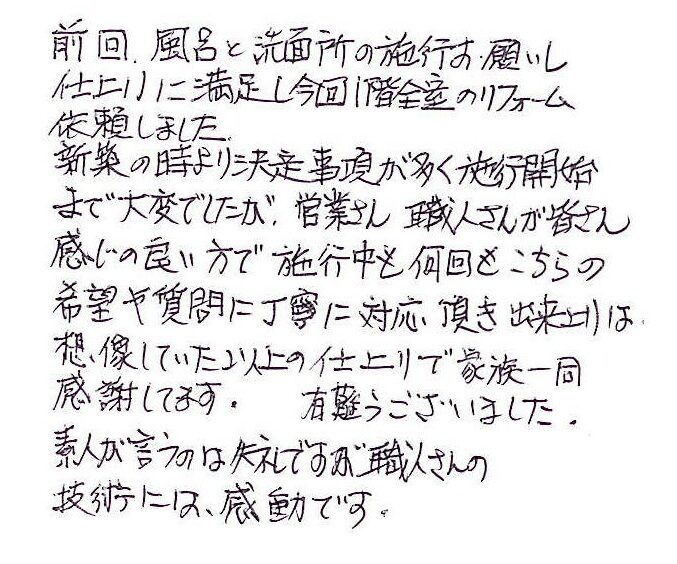 前回、風呂と洗面所の施行お願いし
仕上りに満足し今回1階全室のリフォーム
依頼しました。
新築の時より決定事項が多く施行開始
まで大変でしたが、営業さん 職人さんが皆さん
感じの良い方で施行中も何回もこちらの
希望や質問に丁寧に対応、頂き出来上りは
想像していた以上の仕上りで家族一同
感謝してます。 有難うございました。
素人が言うのは失礼ですが職人さんの
技術には、感動です。